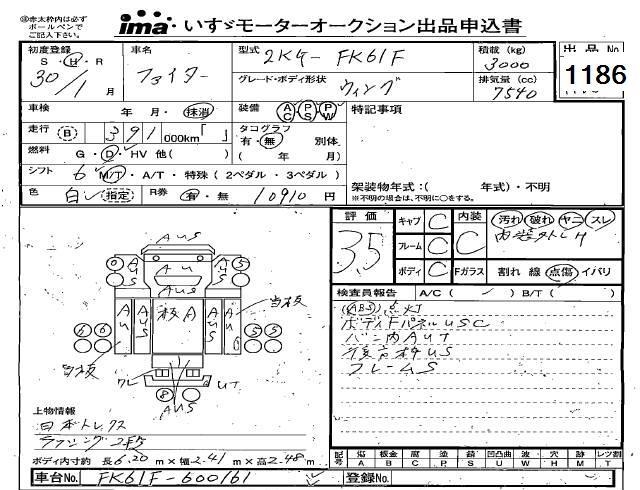 ※赤太枠内は必ず
ボールペンで
ご記入下さい。
ima・いすゞモーターオークション出品申込書
初度登録
S・H・R
30/1月
車名
ファイター
型式
2KG-FK61F
積載(kg)
3000
グレード・ボディ形状
ウィング
排気量(cc)
7540
出品No
1186
車検 年 月・抹消
装備 AC PS PW
特記事項
走行 B 391 000km「 」
タコグラフ
有・無 別体
( 年 月)
燃料 G・D・HV 他( )
シフト 6 M/T・A/T・特殊(2ペダル・3ペダル)
架装物年式:( 年式)・不明
※不明の場合は、不明に○をする。
色 白 指定 R券 有・無 10910円
評価
3.5
キャブ C
フレーム C
ボディ C
内装 C
汚れ 破れ ヤニ スレ
Fガラス 割れ 線 点傷 イバリ
検査員報告 A/C( ) B/T( )
(ABS)点灯
バン内AUT
フレームS
AUS
当板
当板
UT
AUS
上物情報
日本トレクス
ラッシング2段
ボディ内寸約 長6.20m×幅2.41m×高2.48m
記号 凹A 板金B 腐C 塗P 傷S 錆U 凹凸曲U 波W 穴H 跡M レツ割T
車台No. FK61F-600161
登録No.